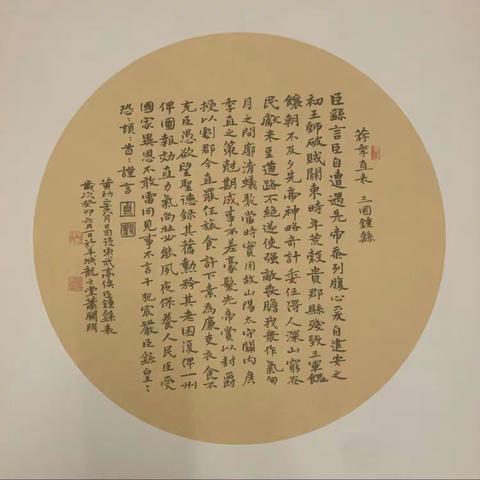 荐季直表 三國鍾繇
臣繇言臣自遭遇先帝忝列腹心爰自建安之
初王師破賊關東時年荒穀貴郡縣殘毀三軍餽
饟朝不及夕先帝神略奇計委任得人深山窮谷
民獻米豆道路不絕遂使強敵喪膽我衆作氣旬
月之間廓清蟻聚當時實用故山陽太守關內侯
季直之策尅期成事不差豪髮先帝賞以封爵
授以劇郡今直罷任旅食許下素為廉吏衣食不
充臣愚欲望聖德錄其舊勳矜其老困復俾一州
俾圖報効直力氣尚壯必能夙夜保養人民臣受
國家異恩不敢雷同見事不言干犯宸嚴臣繇皇〻
恐〻頓〻首〻謹言
黃初二年八月日司徒東武亭侯臣鍾繇表
歲次癸卯六月一日於羊城龍之堂葉關明